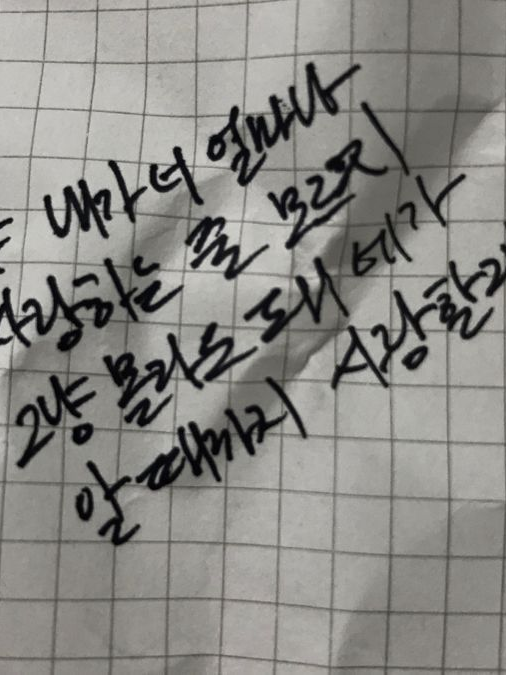 내가 너 얼마나
사랑하는 줄 모르지
그냥 몰라도 돼 네가
알 때까지 사랑할